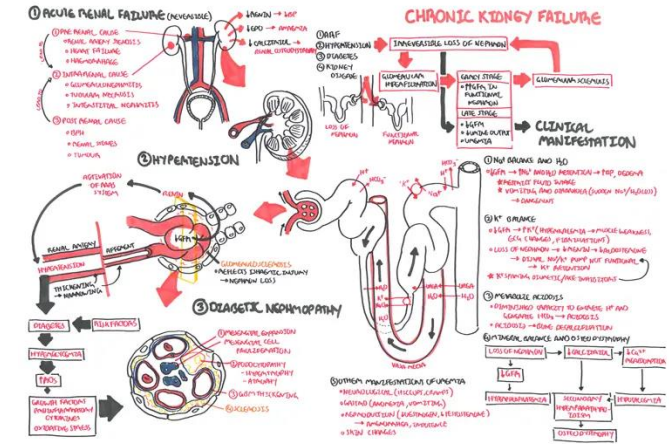 ① ACUTE RENAL FAILURE (REVERSIBLE)
① PRE RENAL CAUSE
• RENAL ARTERY STENOSIS
• HEART FAILURE
• HAEMORRHAGE
② INTRARENAL CAUSE
• GLOMERULONEPHRITIS
• TUBULAR NECROSIS
• INTERSTITIAL NEPHRITIS
③ POST RENAL CAUSE
• BPH
• RENAL STONES
• TUMOUR
↓RENIN → ↓BP
↓EPO → ANAEMIA
↓CALCITRIOL →
RENAL OSTEODYSTROPHY
CHRONIC KIDNEY FAILURE
① ARF
② HYPERTENSION
③ DIABETES
④ KIDNEY
DISEASE
IRREVERSIBLE LOSS OF NEPHRON
GLOMERULAR
HYPERFILTRATION
EARLY STAGE
FUNCTIONAL
NEPHRON
LATE STAGE
• ↓GFR
• ↓URINE OUTPUT
• UREMIA
GLOMERULAR SCLEROSIS
LOSS OF
NEPHRON
FUNCTIONAL
NEPHRON
CLINICAL
MANIFESTATION
② HYPERTENSION
ACTIVATION
OF RAAS
SYSTEM
RENIN
↓GFR
RENAL ARTERY
AFFERENT
HYPERTENSION
THICKENING
→ NARROWING
GLOMERULOSCLEROSIS
• REFLECTS ISCHAEMIC INJURY
→ NEPHRON LOSS
③ DIABETIC NEPHROPATHY
DIABETES
RISK FACTORS
HYPERGLYCEMIA
GROWTH FACTORS
PROINFLAMMATORY
CYTOKINES
OXIDATIVE STRESS
① MESANGIAL EXPANSION
MESANGIAL CELL
PROLIFERATION
② PODOCYTOPATHY
- HYPERTROPHY
- ATROPHY
③ GBM THICKENING
④ SCLEROSIS
H⁺
HCO₃⁻
K⁺
H₂O
UREA
H₂O
VASA RECTA
① Na⁺ BALANCE AND H₂O
* RESTRICT FLUID INTAKE
* VOMITING AND DIARRHOEA (SUDDEN Na⁺/H₂O LOSS)
→ DANGEROUS
② K⁺ BALANCE
• ↓GFR → ↑K⁺ (HYPERKALAEMIA → MUSCLE WEAKNESS,
ECG CHANGES, FIBRILLATION)
• LOSS OF NEPHRON → ↓RENIN → ↓ALDOSTERONE
→ DISTAL Na⁺/K⁺ PUMP NOT FUNCTIONAL
→ K⁺ RETENTION
* K⁺ SPARING DIURETIC/ACE INHIBITORS
③ METABOLIC ACIDOSIS
• DIMINISHED CAPACITY TO EXCRETE H⁺ AND
GENERATE HCO₃⁻ → ACIDOSIS
• ACIDOSIS → BONE DECALCIFICATION
④ MINERAL BALANCE AND OSTEODYSTROPHY
LOSS OF NEPHRON
↓CALCITRIOL
↓GFR
HYPERPHOSPHATEMIA
SECONDARY
HYPERPARATHYROIDISM
HYPOCALCEMIA
OSTEODYSTROPHY
⑤ OTHER MANIFESTATIONS OF UREMIA
• SKIN CHANGES